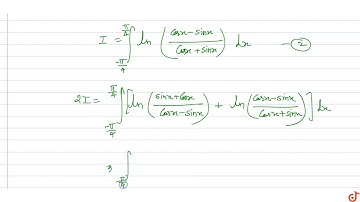 I = ∫_{-π/4}^{π/4} ln ( (cosx - sinx) / (cosx + sinx) ) dx — ②
2I = ∫_{-π/4}^{π/4} [ ln ( (sinx + cosx) / (cosx - sinx) ) + ln ( (cosx - sinx) / (cosx + sinx) ) ] dx